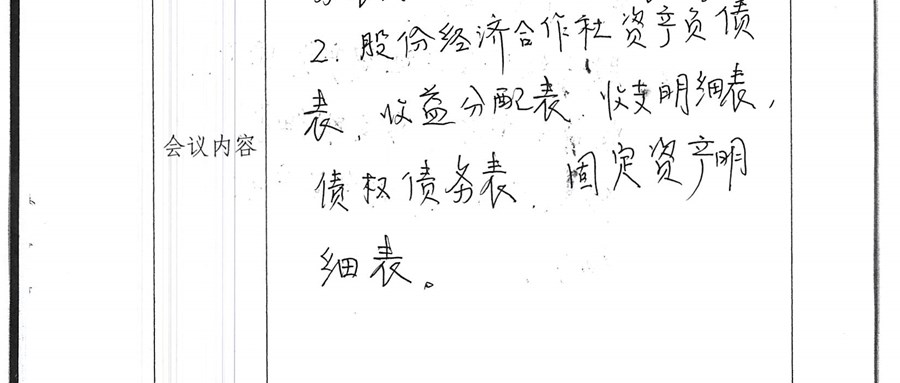 会议内容
2. 股份经济合作社资产负债
表、收益分配表、收支明细表,
债权债务表、固定资产明
细表。